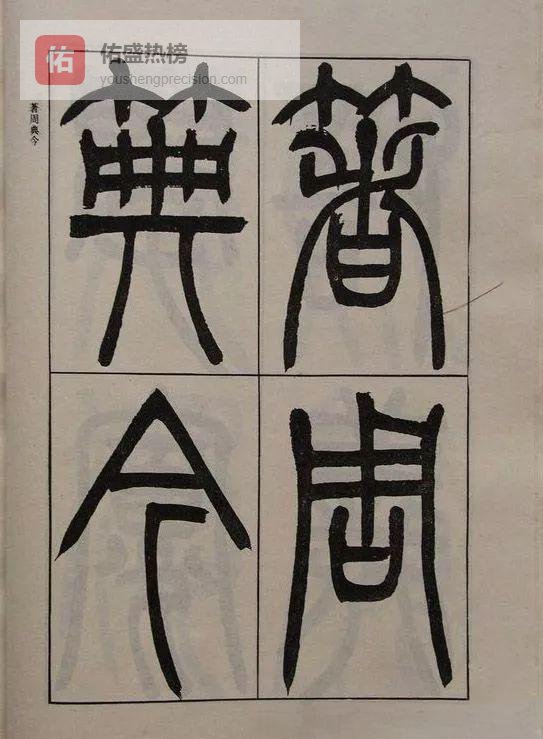 佑 佑盛热榜
youshengprecision.com
著周典今
著周
典今